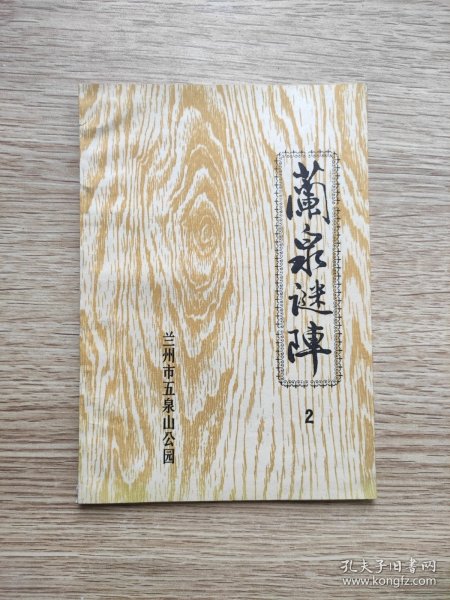 蘭泉谜陣
2
兰州市五泉山公园
孔夫子旧书网
www.kongfz.com